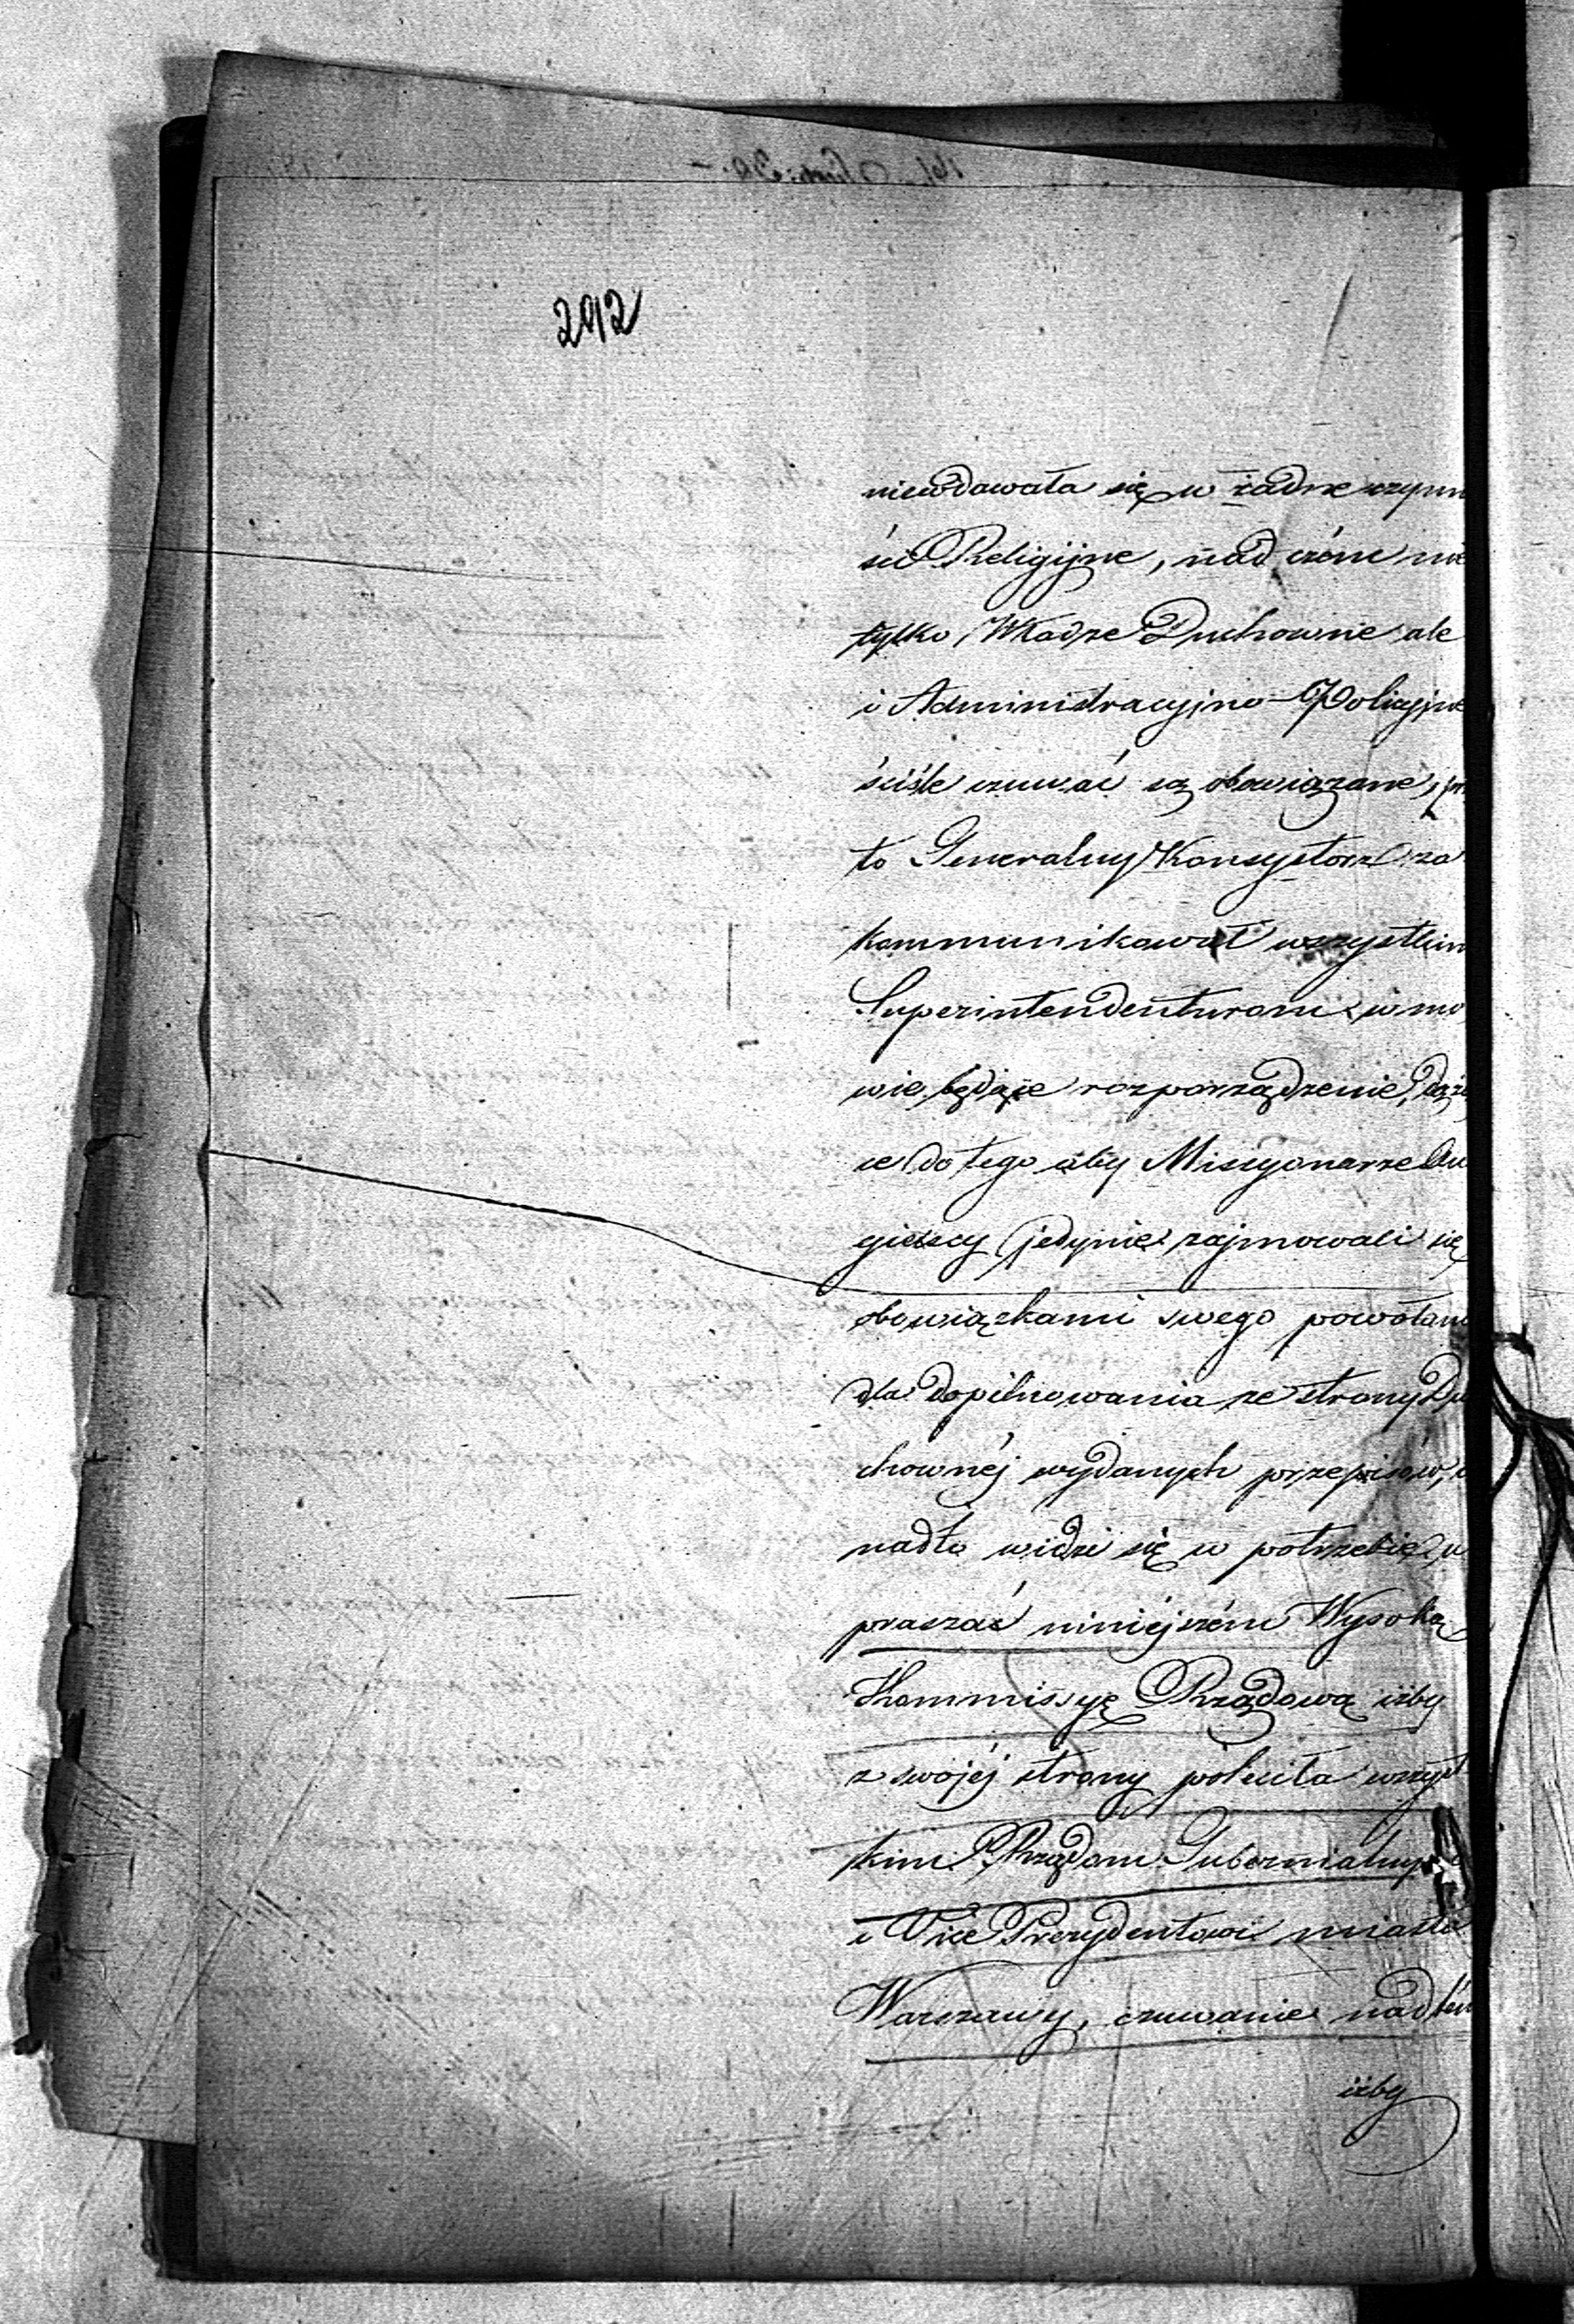 292
niewdawała się w żadne czynn
ści Religijne, nad czém nie
tylko Władze Duchowne ale
i Administracyjno-Policyjne
ściśle czuwać są obowiązane,
to Generalny Konsystorz za
kommunikował wszystkim
Superintendenturom w mo
wie będące rozporządzenie, dążą
ce do tego aby Missyonarze An
gielscy jedynie zajmowali się
obowiązkami swego powołani
dla dopilnowania ze strony Du
chownéj wydanych przepisów,
nadto widzi się w potrzebie u
praszać niniejszém Wysoką
Kommissyę Rządową iżby
z swojéj strony poleciła wszyst
kim Rządom Gubernialny
i Vice Prezydentowi miasta
Warszawy, czuwanie nad tém
iżby